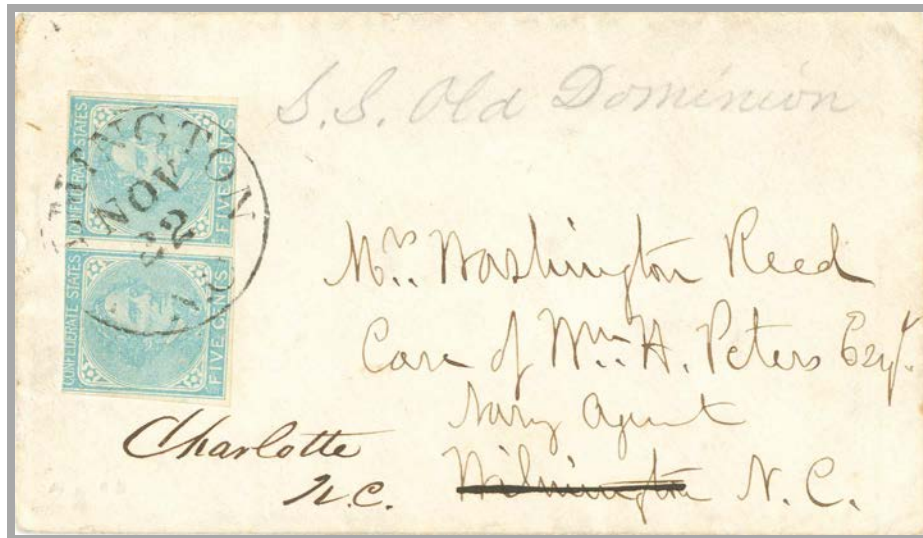 S.S. Old Dominion
CONFEDERATE STATES
FIVE CENTS
CONFEDERATE STATES
FIVE CENTS
MINGTON
NOV
22
Mrs. Washington Reed
Care of Wm. H. Peters Esqr.
Navy Agent
Wilmington N. C.
Charlotte
N.C.